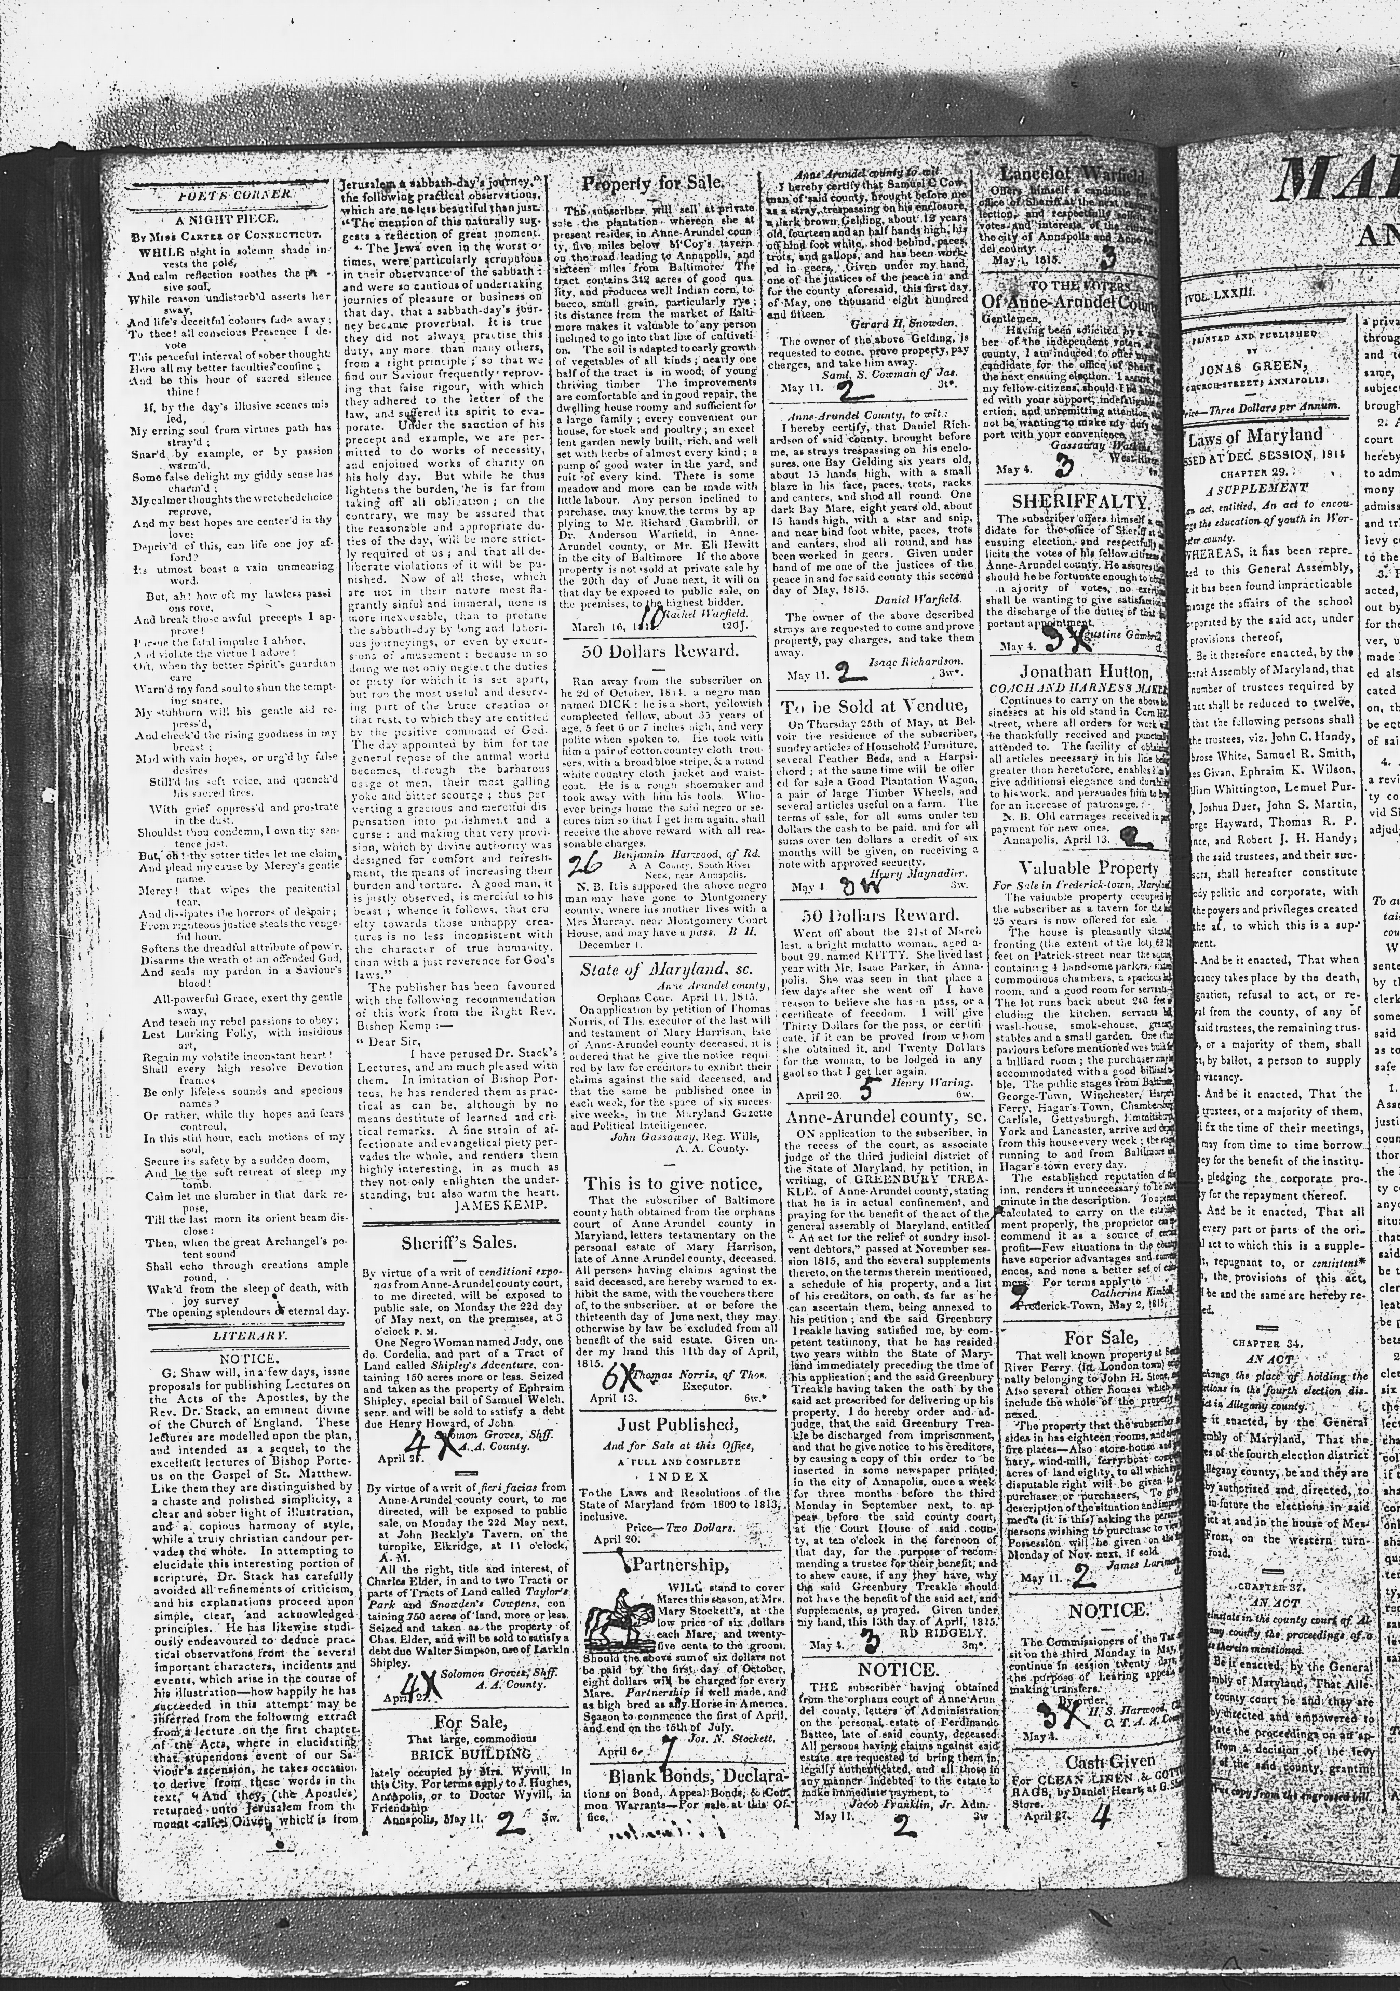 POET'S CORNER.
A NIGHT PIECE.
BY MISS CARTER OF CONNECTICUT.
WHILE night in solemn shade in-
vests the pole,
And calm reflection soothes the pe-
sive soul,
While reason undisturb'd asserts her
sway,
And life's deceitful colours fade away;
To thee! all conscious Presence I de-
vote
This peaceful interval of sober thought:
Here all my better faculties confine;
And be this hour of sacred silence
thine!
If, by the day's illusive scenes mis
led,
My erring soul from virtues path has
stray'd;
Snar'd by example, or by passion
warm'd,
Some false delight my giddy sense has
charm'd;
My calmer thoughts the wretched choice
reprove,
And my best hopes are center'd in thy
love:
Depriv'd of this, can life one joy af-
ford?
Its utmost boast a vain unmeaning
word.
But, ah! how oft my lawless passi
ons rove,
And break those awful precepts I ap-
prove!
Pursue the fatal impulse I abhor,
And violate the virtue I adore!
Oft, when thy better Spirit's guardian
care
Warn'd my fond soul to shun the tempt-
ing snare,
My stubborn will his gentle aid re-
press'd,
And check'd the rising goodness in my
breast;
Mad with vain hopes, or urg'd by false
desires
Still'd his soft voice, and quench'd
his sacred fires.
With grief oppress'd and prostrate
in the dust,
Shouldst thou condemn, I own thy sen-
tence just.
But, oh! thy softer titles let me claim,
And plead my cause by Mercy's gentle
name.
Mercy! that wipes the penitential
tear,
And dissipates the horrors of despair;
From righteous justice steals the venge-
ful hour,
Softens the dreadful attribute of pow'r,
Disarms the wrath of an offended God,
And seals my pardon in a Saviour's
blood!
All-powerful Grace, exert thy gentle
sway,
And teach my rebel passions to obey;
Lest Lurking Folly, with insidious
art,
Regain my volatile inconstant heart!
Shall every high resolve Devotion
frames
Be only lifeless sounds and specious
names?
Or rather, while thy hopes and fears
controul,
In this still hour, each motions of my
soul,
Secure its safety by a sudden doom,
And be the soft retreat of sleep my
tomb.
Calm let me slumber in that dark re-
pose,
Till the last morn its orient beam dis-
close:
Then, when the great Archangel's po-
tent sound
Shall echo through creations ample
round,
Wak'd from the sleep of death, with
joy survey
The opening splendours of eternal day.
LITERARY.
NOTICE.
G. Shaw will, in a few days, issue
proposals for publishing Lectures on
the Acts of the Apostles, by the
Rev. Dr. Stack, an eminent divine
of the Church of England. These
lectures are modelled upon the plan,
and intended as a sequel, to the
excellent lectures of Bishop Porte-
us on the Gospel of St. Matthew.
Like them they are distinguished by
a chaste and polished simplicity, a
clear and sober light of illustration,
and a copious harmony of style,
while a truly christian candour per-
vades the whole. In attempting to
elucidate this interesting portion of
scripture, Dr. Stack has carefully
avoided all refinements of criticism,
and his explanations proceed upon
simple, clear, and acknowledged
principles. He has likewise studi-
ously endeavoured to deduce prac-
tical observations from the several
important characters, incidents and
events, which arise in the course of
his illustration—how happily he has
succeeded in this attempt may be
inferred from the following extract
from a lecture on the first chapter
of the Acts, where in elucidating
that stupendous event of our Sa-
viour's ascension, he takes occasion
to derive from these words in the
text, "And they, (the Apostles)
returned unto Jerusalem from the
mount called Olivet, which is from
Jerusalem a sabbath-day's journey,"
the following practical observations,
which are no less beautiful than just.
"The mention of this naturally sug-
gests a reflection of great moment.
"The Jews even in the worst o
times, were particularly scrupulous
in their observance of the sabbath:
and were so cautious of undertaking
journies of pleasure or business on
that day, that a sabbath-day's jour-
ney became proverbial. It is true
they did not always practise this
duty, any more than many others,
from a right principle; so that we
find our Saviour frequently reprov-
ing that false rigour, with which
they adhered to the letter of the
law, and suffered its spirit to eva-
porate. Under the sanction of his
precept and example, we are per-
mitted to do works of necessity,
and enjoined works of charity on
his holy day. But while he thus
lightens the burden, he is far from
taking off all obligation; on the
contrary, we may be assured that
the reasonable and appropriate du-
ties of the day, will be more strict-
ly required of us; and that all de-
liberate violations of it will be pu-
nished. Now of all these, which
are not in their nature most fla-
grantly sinful and immoral, none is
more inexcusable, than to profane
the sabbath-day by long and labori-
ous journeyings, or even by excur-
sions of amusement; because in so
doing we not only neglect the duties
of piety for which it is set apart,
but rob the most useful and deserv-
ing part of the brute creation of
that rest, to which they are entitled
by the positive command of God.
The day appointed by him for the
general repose of the animal world
becomes, through the barbarous
usage of men, their most galling
yoke and bitter scourge; thus per-
verting a gracious and merciful dis
pensation into punishment and a
curse: and making that very provi-
sion, which by divine authority was
designed for comfort and refresh-
ment, the means of increasing their
burden and torture. A good man, it
is justly observed, is merciful to his
beast; whence it follows, that cru
elty towards those unhappy crea-
tures is no less inconsistent with
the character of true humanity,
than with a just reverence for God's
laws."
The publisher has been favoured
with the following recommendation
of this work from the Right Rev.
Bishop Kemp:—
"Dear Sir,
I have perused Dr. Stack's
Lectures, and am much pleased with
them. In imitation of Bishop Por-
teus, he has rendered them as prac-
tical as can be, although by no
means destitute of learned and cri-
tical remarks. A fine strain of af-
fectionate and evangelical piety per-
vades the whole, and renders them
highly interesting, in as much as
they not only enlighten the under-
standing, but also warm the heart.
JAMES KEMP.
Sheriff's Sales.
By virtue of a writ of venditioni expo-
nas from Anne-Arundel county court,
to me directed, will be exposed to
public sale, on Monday the 22d day
of May next, on the premises, at 3
o'clock P. M.
One Negro Woman named Judy, one
do. Cordelia, and part of a Tract of
Land called Shipley's Adventure, con-
taining 150 acres more or less. Seized
and taken as the property of Ephraim
Shipley, special bail of Samuel Welch,
senr. and will be sold to satisfy a debt
due Henry Howard, of John
Solomon Groves, Shff.
A. A. County.
April 27. 4X
By virtue of a writ of fieri facias from
Anne-Arundel county court, to me
directed, will be exposed to public
sale, on Monday the 22d May next,
at John Beckly's Tavern, on the
turnpike, Elkridge, at 11 o'clock,
A. M.
All the right, title and interest, of
Charles Elder, in and to two Tracts or
parts of Tracts of Land called Taylor's
Park and Snowden's Cowpens, con
taining 750 acres of land, more or less.
Seized and taken as the property of
Chas. Elder, and will be sold to satisfy a
debt due Walter Simpson, use of Larkin
Shipley.
Solomon Groves, Shff.
A. A. County.
April 27. 4X
For Sale,
That large, commodious
BRICK BUILDING
lately occupied by Mrs. Wyvill, in
this City. For terms apply to J. Hughes,
Annapolis, or to Doctor Wyvill, in
Friendship
Annapolis, May 11. 2 3w.
Property for Sale.
The subscriber will sell at private
sale the plantation whereon she at
present resides, in Anne-Arundel coun
ty, five miles below M'Coy's tavern
on the road leading to Annapolis, and
sixteen miles from Baltimore. The
tract contains 342 acres of good qua
lity, and produces well Indian corn, to-
bacco, small grain, particularly rye;
its distance from the market of Balti-
more makes it valuable to any person
inclined to go into that line of cultivati-
on. The soil is adapted to early growth
of vegetables of all kinds; nearly one
half of the tract is in wood, of young
thriving timber The improvements
are comfortable and in good repair, the
dwelling house roomy and sufficient for
a large family; every convenient our
house, for stock and poultry; an excel
lent garden newly built, rich, and well
set with herbs of almost every kind; a
pump of good water in the yard, and
fruit of every kind. There is some
meadow and more can be made with
little labour. Any person inclined to
purchase, may know the terms by ap
plying to Mr. Richard Gambrill, or
Dr. Anderson Warfield, in Anne-
Arundel county, or Mr. Eli Hewitt
in the city of Baltimore If the above
property is not sold at private sale by
the 20th day of June next, it will on
that day be exposed to public sale, on
the premises, to the highest bidder.
Rachel Warfield.
March 16, 10 t20J.
50 Dollars Reward.
Ran away from the subscriber on
he 2d of October, 1814, a negro man
named DICK: he is a short, yellowish
complected fellow, about 35 years of
age, 5 feet 6 or 7 inches high, and very
polite when spoken to. He took with
him a pair of cotton country cloth trou-
sers, with a broad blue stripe, & a round
white country cloth jacket and waist-
coat. He is a rough shoemaker and
took away with him his tools. Who-
ever brings home the said negro or se-
cures him so that I get him again, shall
receive the above reward with all rea-
sonable charges.
26 Benjamin Harwood, of Rd.
A. A. County, South River
Neck, near Annapolis.
N. B. It is supposed the above negro
man may have gone to Montgomery
county, where his mother lives with a
Mrs Murray, near Montgomery Court
House, and may have a pass. B H.
December 1.
State of Maryland, sc.
Anne Arundel county,
Orphans Court, April 11, 1815.
On application by petition of Thomas
Norris, of Ths. executor of the last will
and testament of Mary Harrison, late
of Anne-Arundel county deceased, it is
ordered that he give the notice requi-
red by law for creditors to exhibit their
claims against the said deceased, and
that the same be published once in
each week, for the space of six succes-
sive weeks, in the Maryland Gazette
and Political Intelligencer.
John Gassaway, Reg. Wills,
A. A. County.
This is to give notice,
That the subscriber of Baltimore
county hath obtained from the orphans
court of Anne-Arundel county in
Maryland, letters testamentary on the
personal estate of Mary Harrison,
late of Anne Arundel county, deceased.
All persons having claims against the
said deceased, are hereby warned to ex-
hibit the same, with the vouchers there
of, to the subscriber, at or before the
thirteenth day of June next, they may
otherwise by law be excluded from all
benefit of the said estate. Given un-
der my hand this 11th day of April,
1815.
6X Thomas Norris, of Thos.
Executor.
April 13. 6w.*
Just Published,
And for Sale at this Office,
A FULL AND COMPLETE
INDEX
To the Laws and Resolutions of the
State of Maryland from 1800 to 1813,
inclusive.
Price—Two Dollars.
April 20.
Partnership,
WILL stand to cover
Mares this season, at Mrs.
Mary Stockett's, at the
low price of six dollars
each Mare, and twenty-
five cents to the groom.
Should the above sum of six dollars not
be paid by the first day of October,
eight dollars will be charged for every
Mare. Partnership is well made, and
as high bred as any Horse in America.
Season to commence the first of April,
and end on the 15th of July.
Jos. N. Stockett.
April 6. 7
Blank Bonds, Declara-
tions on Bond, Appeal Bonds, & Com-
mon Warrants—For sale at this Of-
fice.
Anne-Arundel county to wit.
I hereby certify that Samuel C Cow-
man of said county, brought before me
as a stray, trespassing on his enclosure,
a dark brown Gelding, about 12 years
old, fourteen and an half hands high, his
off hind foot white, shod behind, paces,
trots, and gallops, and has been work-
ed in geers. Given under my hand,
one of the justices of the peace in and
for the county aforesaid, this first day
of May, one thousand eight hundred
and fifteen.
Gerard H. Snowden.
The owner of the above Gelding, is
requested to come, prove property, pay
charges, and take him away.
Saml. S. Cowman of Jas.
May 11. 2 3t*.
Anne-Arundel County, to wit:
I hereby certify, that Daniel Rich-
ardson of said county, brought before
me, as strays trespassing on his enclo-
sures, one Bay Gelding six years old,
about 15 hands high, with a small
blaze in his face, paces, trots, racks
and canters, and shod all round. One
dark Bay Mare, eight years old, about
15 hands high, with a star and snip,
and near hind foot white, paces, trots
and canters, shod all round, and has
been worked in geers. Given under
hand of me one of the justices of the
peace in and for said county this second
day of May, 1815.
Daniel Warfield.
The owner of the above described
strays are requested to come and prove
property, pay charges, and take them
away.
Isaac Richardson.
May 11. 2 3w*.
To be Sold at Vendue,
On Thursday 25th of May, at Bel-
voir the residence of the subscriber,
sundry articles of Household Furniture,
several Feather Beds, and a Harpsi-
chord; at the same time will be offer
ed for sale a Good Plantation Wagon,
a pair of large Timber Wheels, and
several articles useful on a farm. The
terms of sale, for all sums under ten
dollars the cash to be paid, and for all
sums over ten dollars a credit of six
months will be given, on receiving a
note with approved security.
Henry Maynadier.
May 4 3w.
50 Dollars Reward.
Went off about the 21st of March
last, a bright mulatto woman, aged a-
bout 29, named KITTY. She lived last
year with Mr. Isaac Parker, in Anna-
polis. She was seen in that place a
few days after she went off I have
reason to believe she has a pass, or a
certificate of freedom. I will give
Thirty Dollars for the pass, or certifi
cate, if it can be proved from whom
she obtained it, and Twenty Dollars
for the woman, to be lodged in any
gaol so that I get her again.
Henry Waring.
April 20. 5 6w.
Anne-Arundel county, sc.
ON application to the subscriber, in
the recess of the court, as associate
judge of the third judicial district of
the State of Maryland, by petition, in
writing, of GREENBURY TREA-
KLE, of Anne-Arundel county, stating
that he is in actual confinement, and
praying for the benefit of the act of the
general assembly of Maryland, entitled
"An act for the relief of sundry insol-
vent debtors," passed at November ses-
sion 1815, and the several supplements
thereto, on the terms therein mentioned,
a schedule of his property, and a list
of his creditors, on oath, as far as he
can ascertain them, being annexed to
his petition; and the said Greenbury
Treakle having satisfied me, by com-
petent testimony, that he has resided
two years within the State of Mary-
land immediately preceding the time of
his application; and the said Greenbury
Treakle having taken the oath by the
said act prescribed for delivering up his
property, I do hereby order and ad-
judge, that the said Greenbury Trea-
kle be discharged from imprisonment,
and that he give notice to his creditors,
by causing a copy of this order to be
inserted in some newspaper printed
in the city of Annapolis, once a week
for three months before the third
Monday in September next, to ap-
pear before the said county court,
at the Court House of said coun-
ty, at ten o'clock in the forenoon of
that day, for the purpose of recom-
mending a trustee for their benefit, and
to shew cause, if any they have, why
the said Greenbury Treakle should
not have the benefit of the said act, and
supplements, as prayed. Given under
my hand, this 13th day of April, 1815.
RD RIDGELY.
May 4. 3 3m*.
NOTICE.
THE subscriber having obtained
from the orphans court of Anne-Arun
del county, letters of Administration
on the personal estate of Ferdinando
Battee, late of said county, deceased
All persons having claims against said
estate are requested to bring them in,
legally authenticated, and all those in
any manner indebted to the estate to
make immediate payment, to
Jacob Franklin, Jr. Adm.
May 11. 2 3w
Lancelot Warfield,
Offers himself a candidate for
office of Sheriff at the next
lection, and respectfully solicits
votes and interests of the
the city of Annapolis and Anne-
del county.
May 4, 1815. 3
TO THE VOTERS
Of Anne-Arundel County
Gentlemen,
Having been solicited by a
ber of the independent voters of
county, I am induced to offer
candidate for the office of Sheriff
the next ensuing election. I
my fellow-citizens, should I be
ed with your support, indefatigable
ertion, and unremitting attention,
not be wanting to make my duty
port with your convenience.
Gassaway
May 4. 3
SHERIFFALTY.
The subscriber offers himself a
didate for the office of Sheriff at
ensuing election, and respectfully
licits the votes of his fellow-citizens
Anne-Arundel county. He assures
should he be fortunate enough to
a majority of votes, no
shall be wanting to give satisfaction
the discharge of the duties of that
portant appointment.
May 4. 3X
Jonathan Hutton,
COACH AND HARNESS MAKER
Continues to carry on the above
sinesses at his old stand in Corn Hill
street, where all orders for work
be thankfully received and punctually
attended to. The facility of obtaining
all articles necessary in his line
greater than heretofore, enables him
give additional elegance and
to his work, and persuades him to
for an increase of patronage.
N. B. Old carriages received in
payment for new ones.
Annapolis, April 13. 2
Valuable Property
For Sale in Frederick-town, Maryland
The valuable property occupied by
the subscriber as a tavern for the
25 years is now offered for sale
The house is pleasantly situated
fronting (the extent of the lot) 62
feet on Patrick-street near the
containing 4 handsome parlors,
commodious chambers, a spacious
room, and a good room for servants
The lot runs back about 246 feet
cluding the kitchen, servants
wash-house, smoke-house,
stables and a small garden. One of
parlours before mentioned was built
a billiard room; the purchaser may be
accommodated with a good billiard
ble. The public stages from Baltimore
George-Town, Winchester, Harper's
Ferry, Hagar's-Town, Chambersburg
Carlisle, Gettysburgh, Emmitsburg
York and Lancaster, arrive and
from this house every week; the
running to and from Baltimore
Hagar's town every day.
The established reputation of
inn, renders it unnecessary to be
minute in the description. To a person
calculated to carry on the establish-
ment properly, the proprietor can
commend it as a source of certain
profit—Few situations in the country
have superior advantages and
ences, and none a better set of
mers. For terms apply to
Catherine Kimball
2 Frederick-Town, May 2, 1815.
For Sale,
That well known property at South
River Ferry, (in London town)
nally belonging to John H. Stone,
Also several other houses which
include the whole of the property
nexed.
The property that the subscriber
sides in has eighteen rooms, and
fire places—Also store-house and
nary, wind-mill, ferry-boat
acres of land eighty, to all which
disputable right will be given to
purchaser or purchasers. To give
description of the situation and
ments (it is this) asking the person
persons wishing to purchase to view
Possession will be given on the
Monday of Nov. next, if sold.
James Larimore
May 11. 2
NOTICE.
The Commissioners of the Tax
sit on the third Monday in May,
continue in session twenty days
the purpose of hearing appeals
making transfers.
By order,
H. S. Harwood, Cl.
C. T. A. A. County
May 4. 3X
Cash Given
For CLEAN LINEN & COTTON
RAGS, by Daniel Heart, at G. Shaw's
Store.
April 27. 4
MAR
AN
[VOL. LXXIII.
PRINTED AND PUBLISHED
BY
JONAS GREEN,
CHURCH-STREET, ANNAPOLIS.
Price—Three Dollars per Annum.
Laws of Maryland
SSED AT DEC. SESSION, 1814
CHAPTER 29.
A SUPPLEMENT
an act, entitled, An act to encou-
ge the education of youth in Wor-
ter county.
WHEREAS, it has been repre-
ted to this General Assembly,
it has been found impracticable
manage the affairs of the school
rporated by the said act, under
provisions thereof,
Be it therefore enacted, by the
eral Assembly of Maryland, that
number of trustees required by
act shall be reduced to twelve,
that the following persons shall
the trustees, viz. John C. Handy,
brose White, Samuel R. Smith,
es Givan, Ephraim K. Wilson,
lliam Whittington, Lemuel Pur-
, Joshua Duer, John S. Martin,
rge Hayward, Thomas R. P.
nce, and Robert J. H. Handy;
the said trustees, and their suc-
sors, shall hereafter constitute
dy politic and corporate, with
the powers and privileges created
the act, to which this is a sup-
ment.
And be it enacted, That when
cancy takes place by the death,
gnation, refusal to act, or re-
al from the county, of any of
said trustees, the remaining trus-
, or a majority of them, shall
, by ballot, a person to supply
vacancy.
And be it enacted, That the
trustees, or a majority of them,
ll fix the time of their meetings,
may from time to time borrow
ey for the benefit of the institu-
, pledging the corporate pro-
y for the repayment thereof.
And be it enacted, That all
every part or parts of the ori-
l act to which this is a supple-
, repugnant to, or consistent*
the provisions of this act,
be and the same are hereby re-
ed.
CHAPTER 34.
AN ACT
hange the place of holding the
ctions in the fourth election dis-
ict in Allegany county.
e it enacted, by the General
mbly of Maryland, That the
es of the fourth election district
llegany county, be and they are
by authorised and directed, to
in future the elections in said
ict at and in the house of Mes-
From, on the western turn-
road.
CHAPTER 37.
AN ACT
Be it enacted, by the General
mbly of Maryland, That Alle-
county court be and they are
by directed and empowered to
the proceedings on an ap-
from a decision of the levy
the said county, granting
true copy from the engrossed bill.